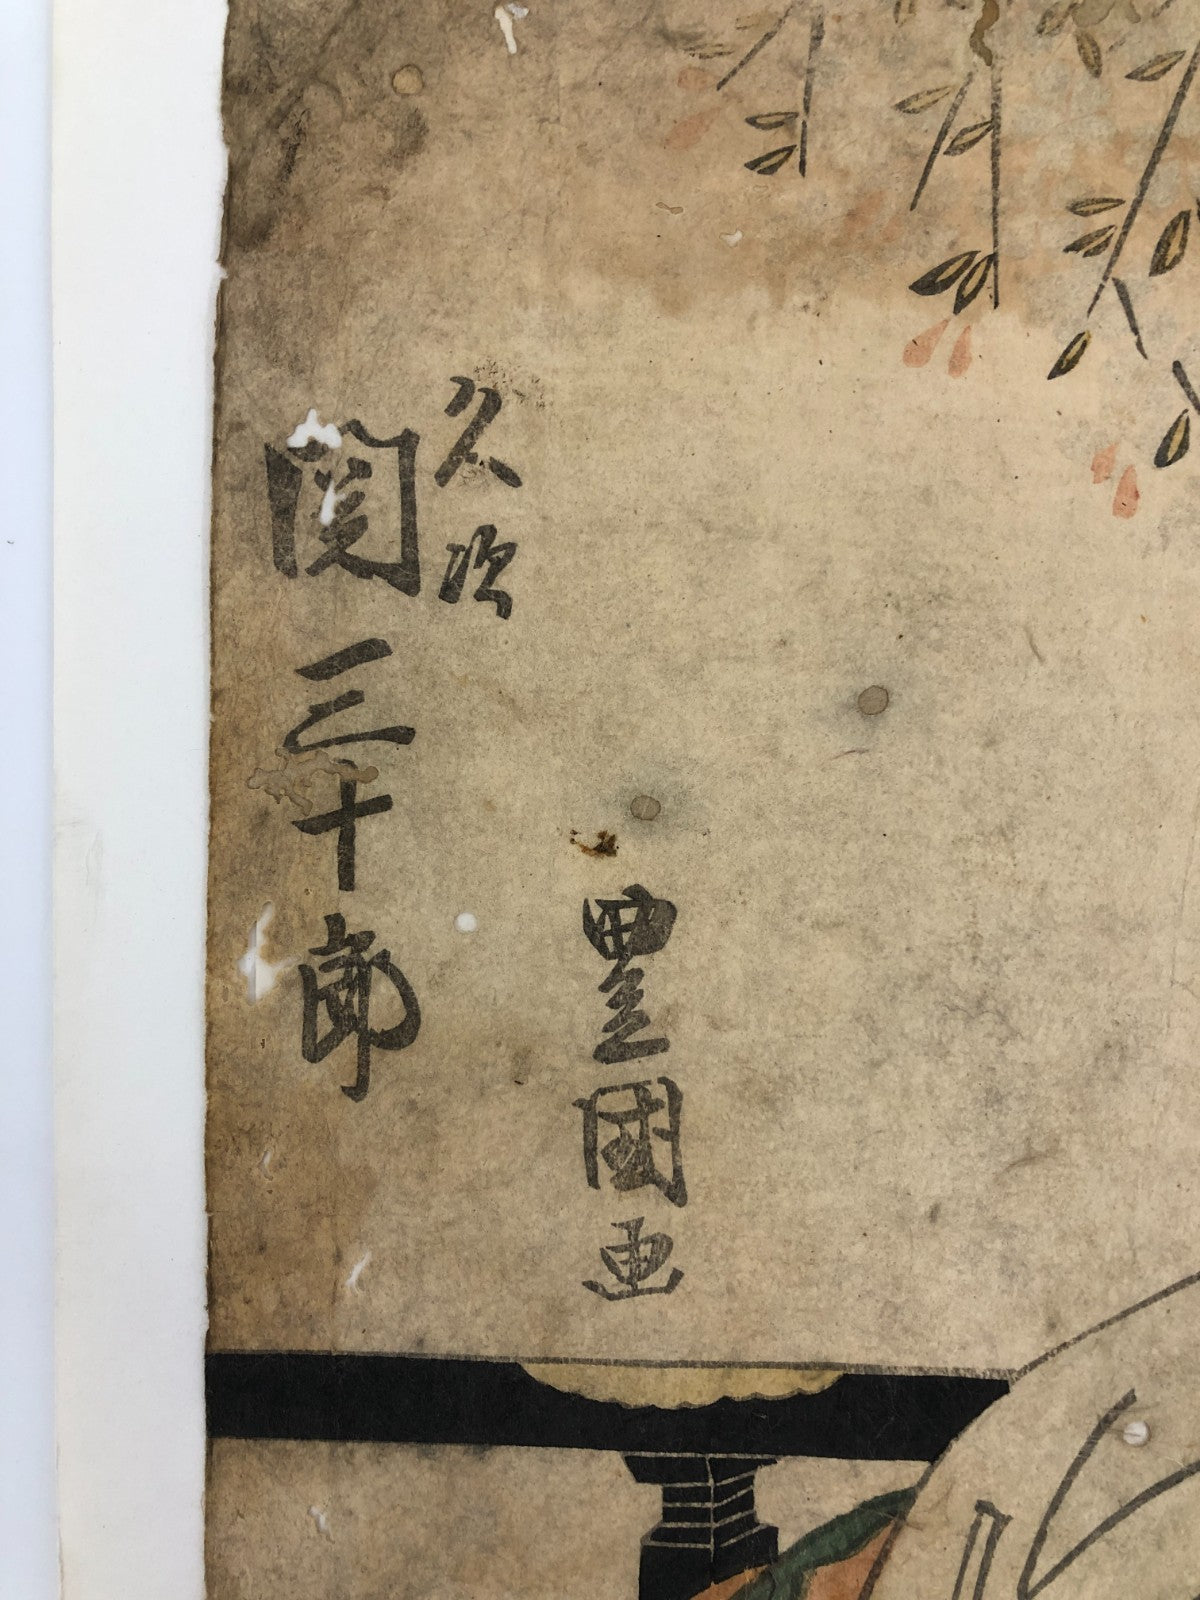 豊國画
久次
関三十郎